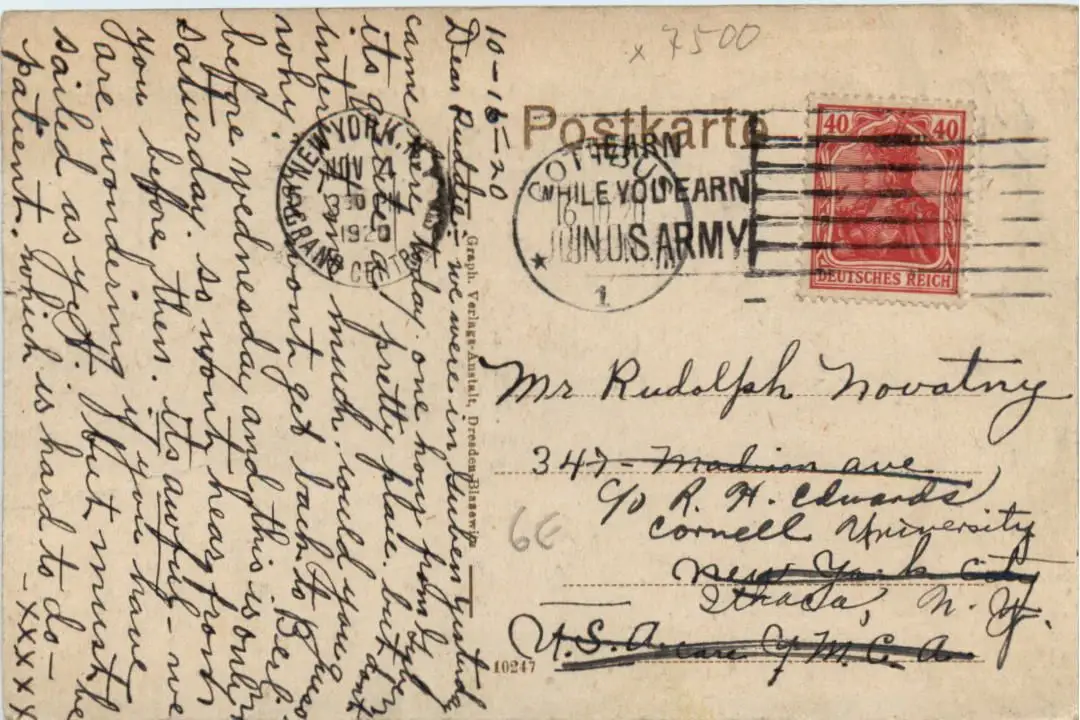 10-16-20
Dear Ruddie:- we were in Guben yesterday
came here today. one hour from
its quite a pretty place. but dont
inter me much. would you
why? wont get back to Berlin
before wednesday and this is only
saturday. so wont hear from
you before then. its awful - we
are wondering if you have
sailed as yet. but must be
patient. which is hard to do -
- XXXXX
NEW YORK, N.Y.
NOV 4
30
1920
GRAND CENTRAL
Graph. Verlags-Anstalt, Dresden-Blasewitz
x 7500
Postkarte
COTTBUS
16.10.20
* 1
LEARN
WHILE YOU EARN
JOIN U.S. ARMY
40 40
DEUTSCHES REICH
Mr Rudolph Novatny
347 - Madison ave
c/o R. H. Edwards
Cornell University
New York City
Ithaca, N. Y.
U.S.A. care Y.M.C.A.
6E
10247